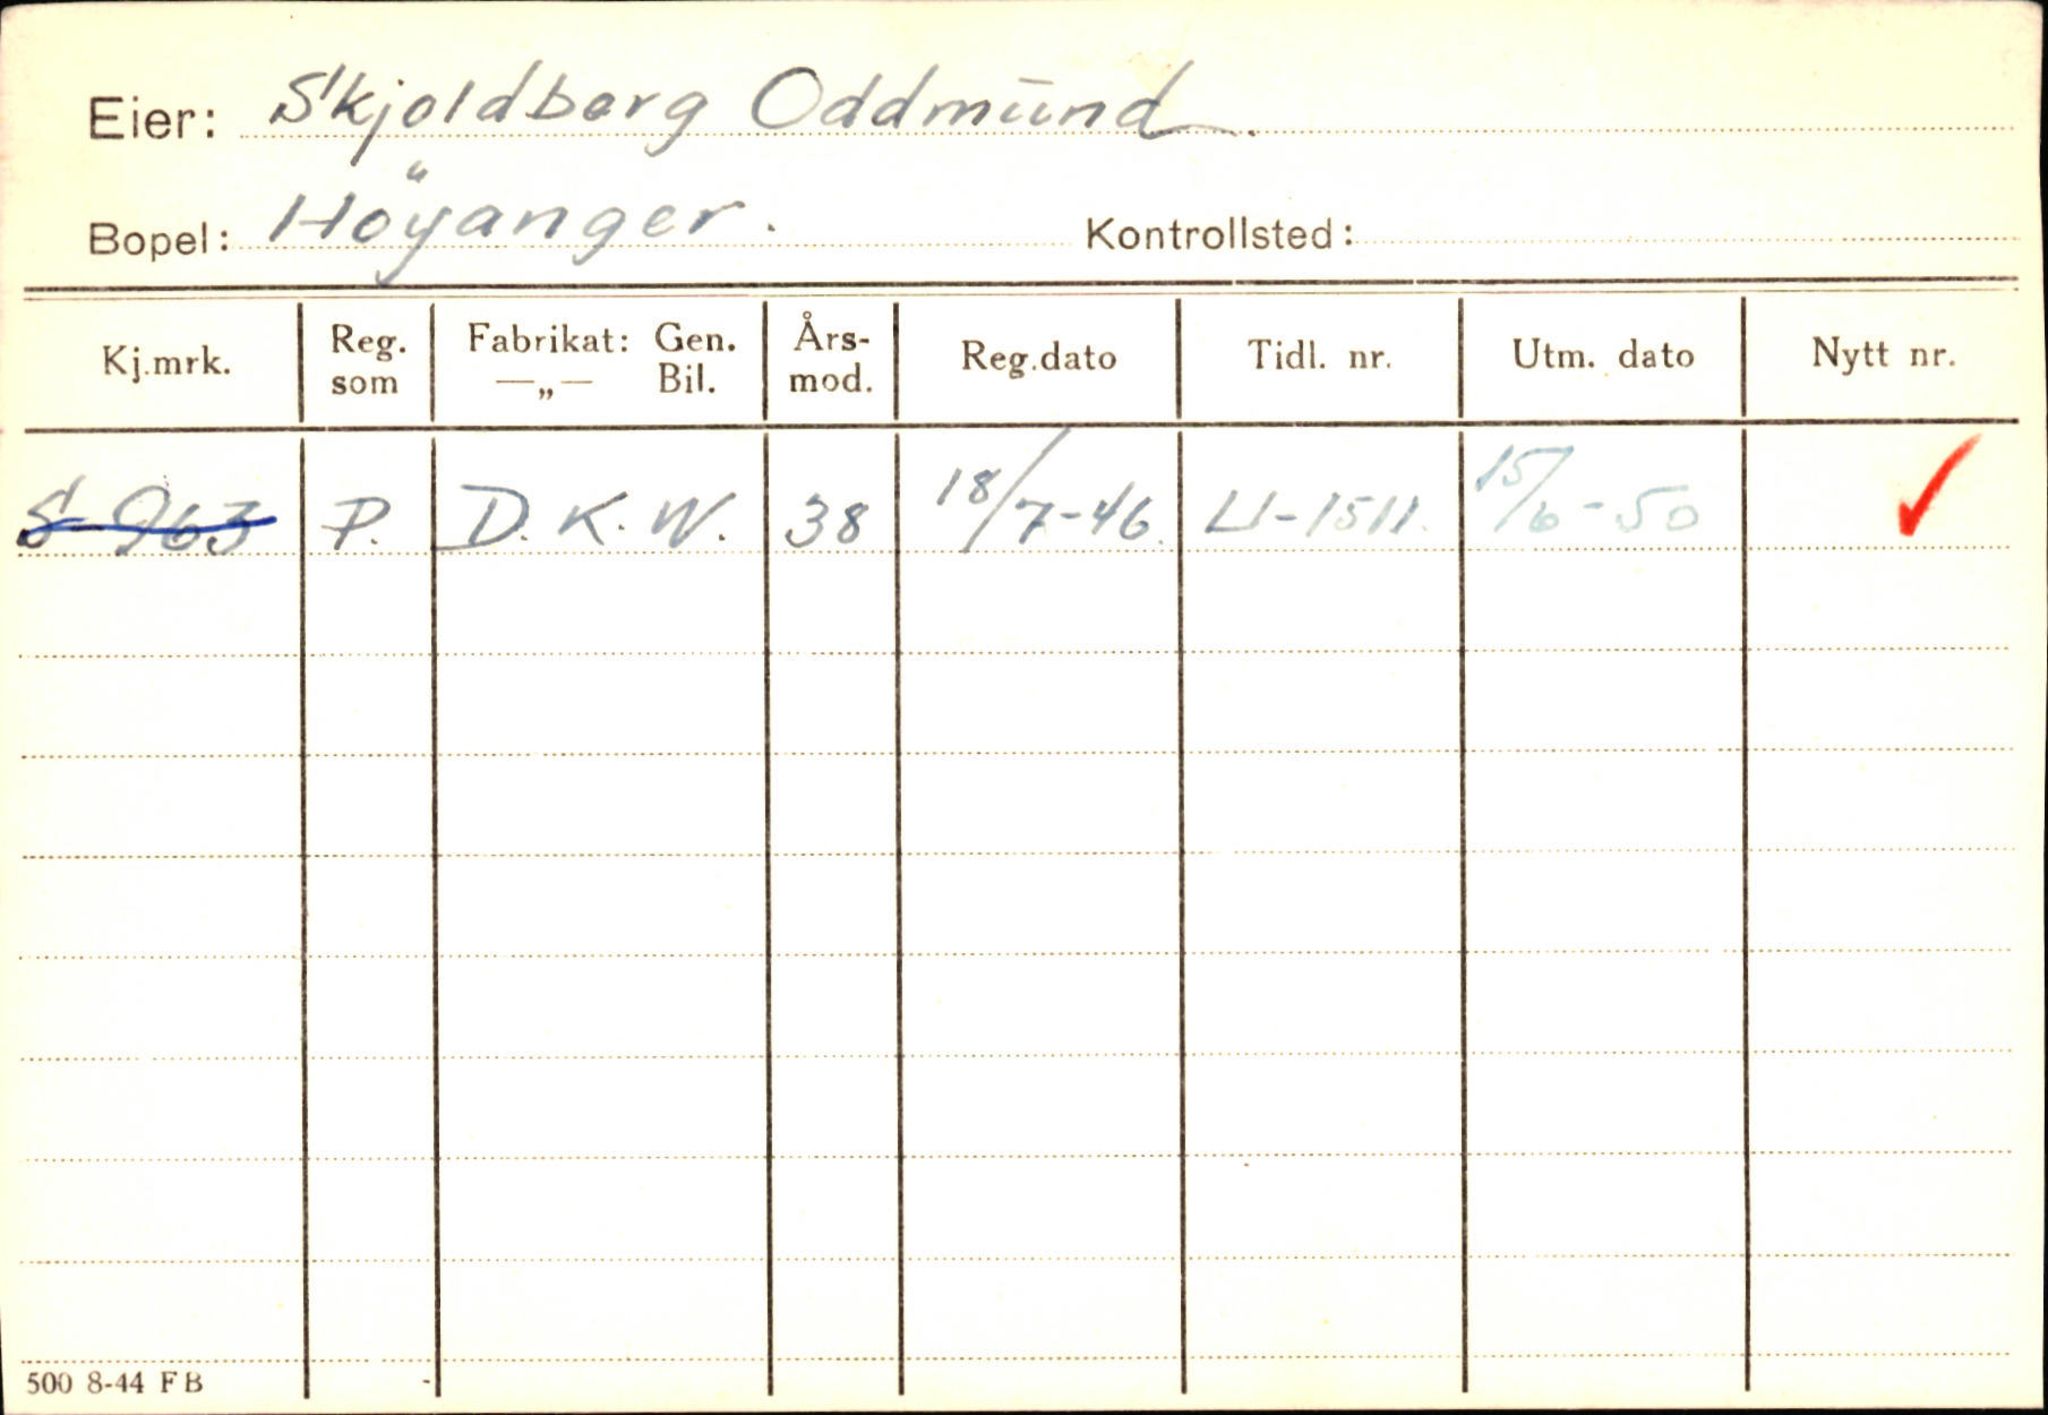 Eier: Skjoldberg Oddmund.
Bopel: Höyanger. Kontrollsted:
Kj.mrk. Reg. som Fabrikat: Gen. —„— Bil. Års- mod. Reg.dato Tidl. nr. Utm. dato Nytt nr.
S-963 P. D.K.W. 38 18/7-46. U-1511. 15/6-50 ✓
500 8-44 FB